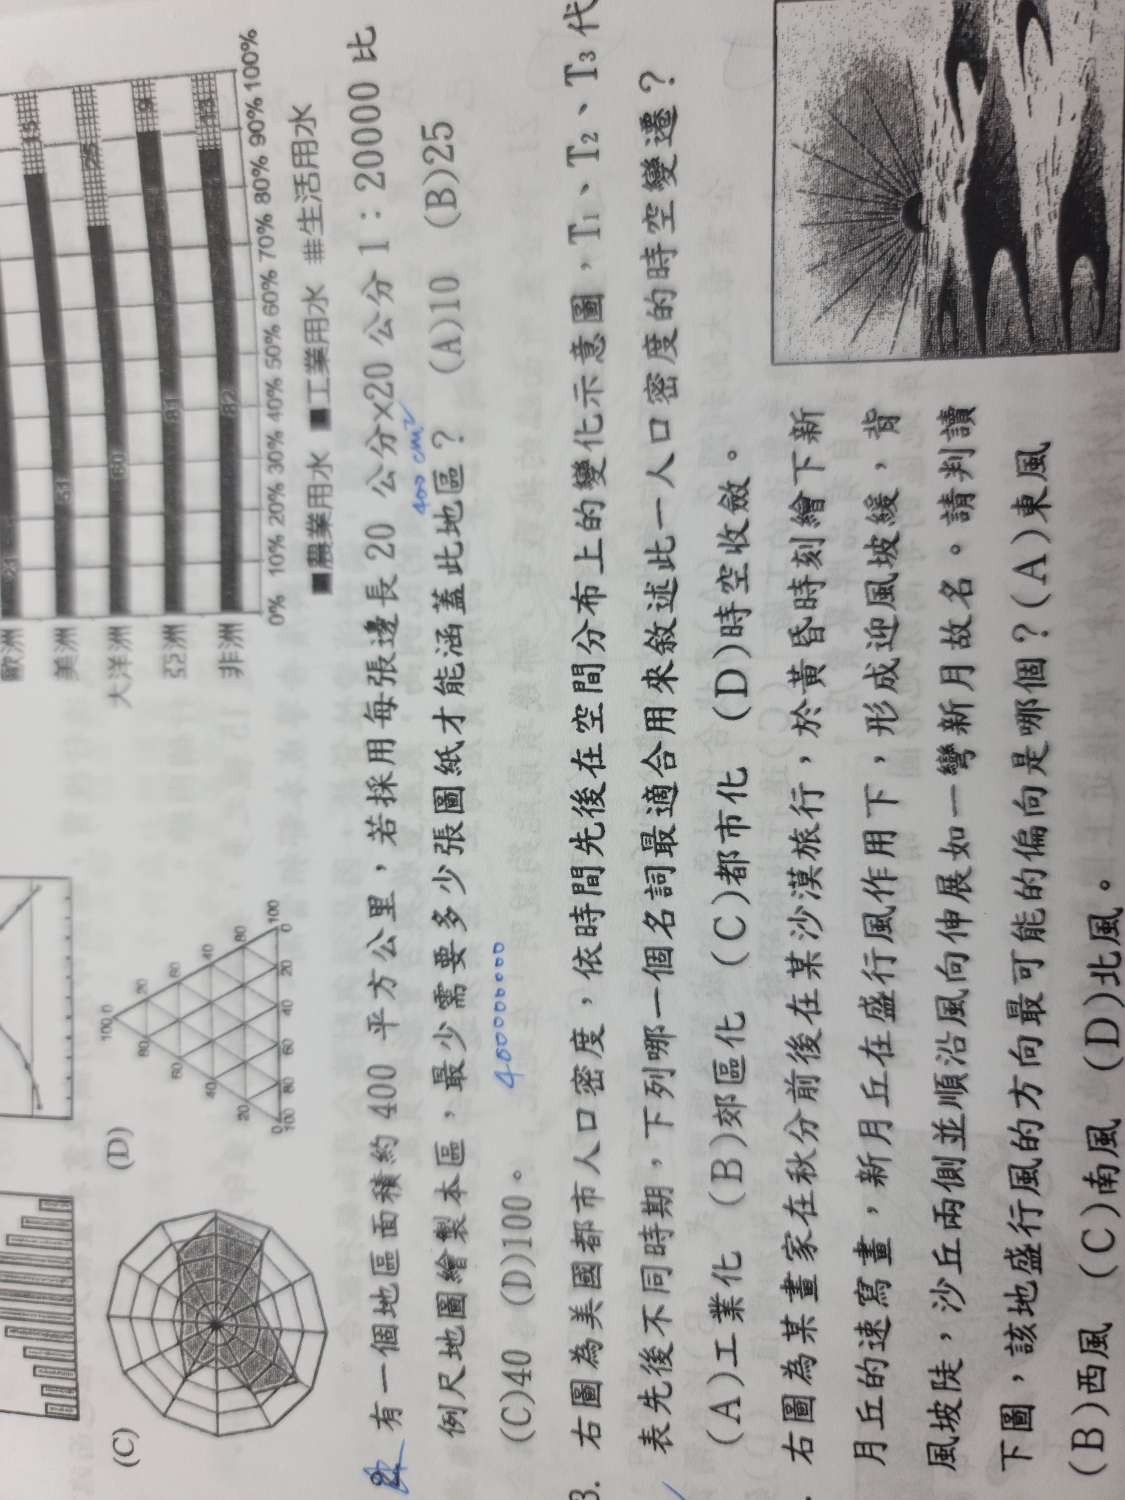 歐洲 21 15
美洲 51
大洋洲 60 25
亞洲 81 9
非洲 82 13
0% 10% 20% 30% 40% 50% 60% 70% 80% 90% 100%
■農業用水 ■工業用水 #生活用水
(C)
(D)
100 0
80 20
60 60
40 40
20 80
0 100
100 80 60 40 20 0
2. 有一個地區面積約 400 平方公里，若採用每張邊長 20 公分×20 公分 1：20000 比
400 cm²
例尺地圖繪製本區，最少需要多少張圖紙才能涵蓋此地區？ (A)10 (B)25
(C)40 (D)100。
3. 右圖為美國都市人口密度，依時間先後在空間分布上的變化示意圖，T1、T2、T3 代
表先後不同時期，下列哪一個名詞最適合用來敘述此一人口密度的時空變遷？
(A)工業化 (B)郊區化 (C)都市化 (D)時空收斂。
右圖為某畫家在秋分前後在某沙漠旅行，於黃昏時刻繪下新
月丘的速寫畫，新月丘在盛行風作用下，形成迎風坡緩，背
風坡陡，沙丘兩側並順沿風向伸展如一彎新月故名。請判讀
下圖，該地盛行風的方向最可能的偏向是哪個？(A)東風
(B)西風 (C)南風 (D)北風。